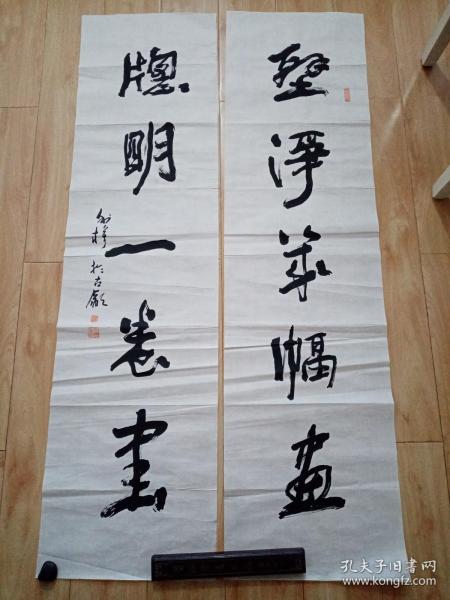 壁淨幾幅畫
牕明一卷書
於古歙
孔夫子旧书网
www.kongfz.com